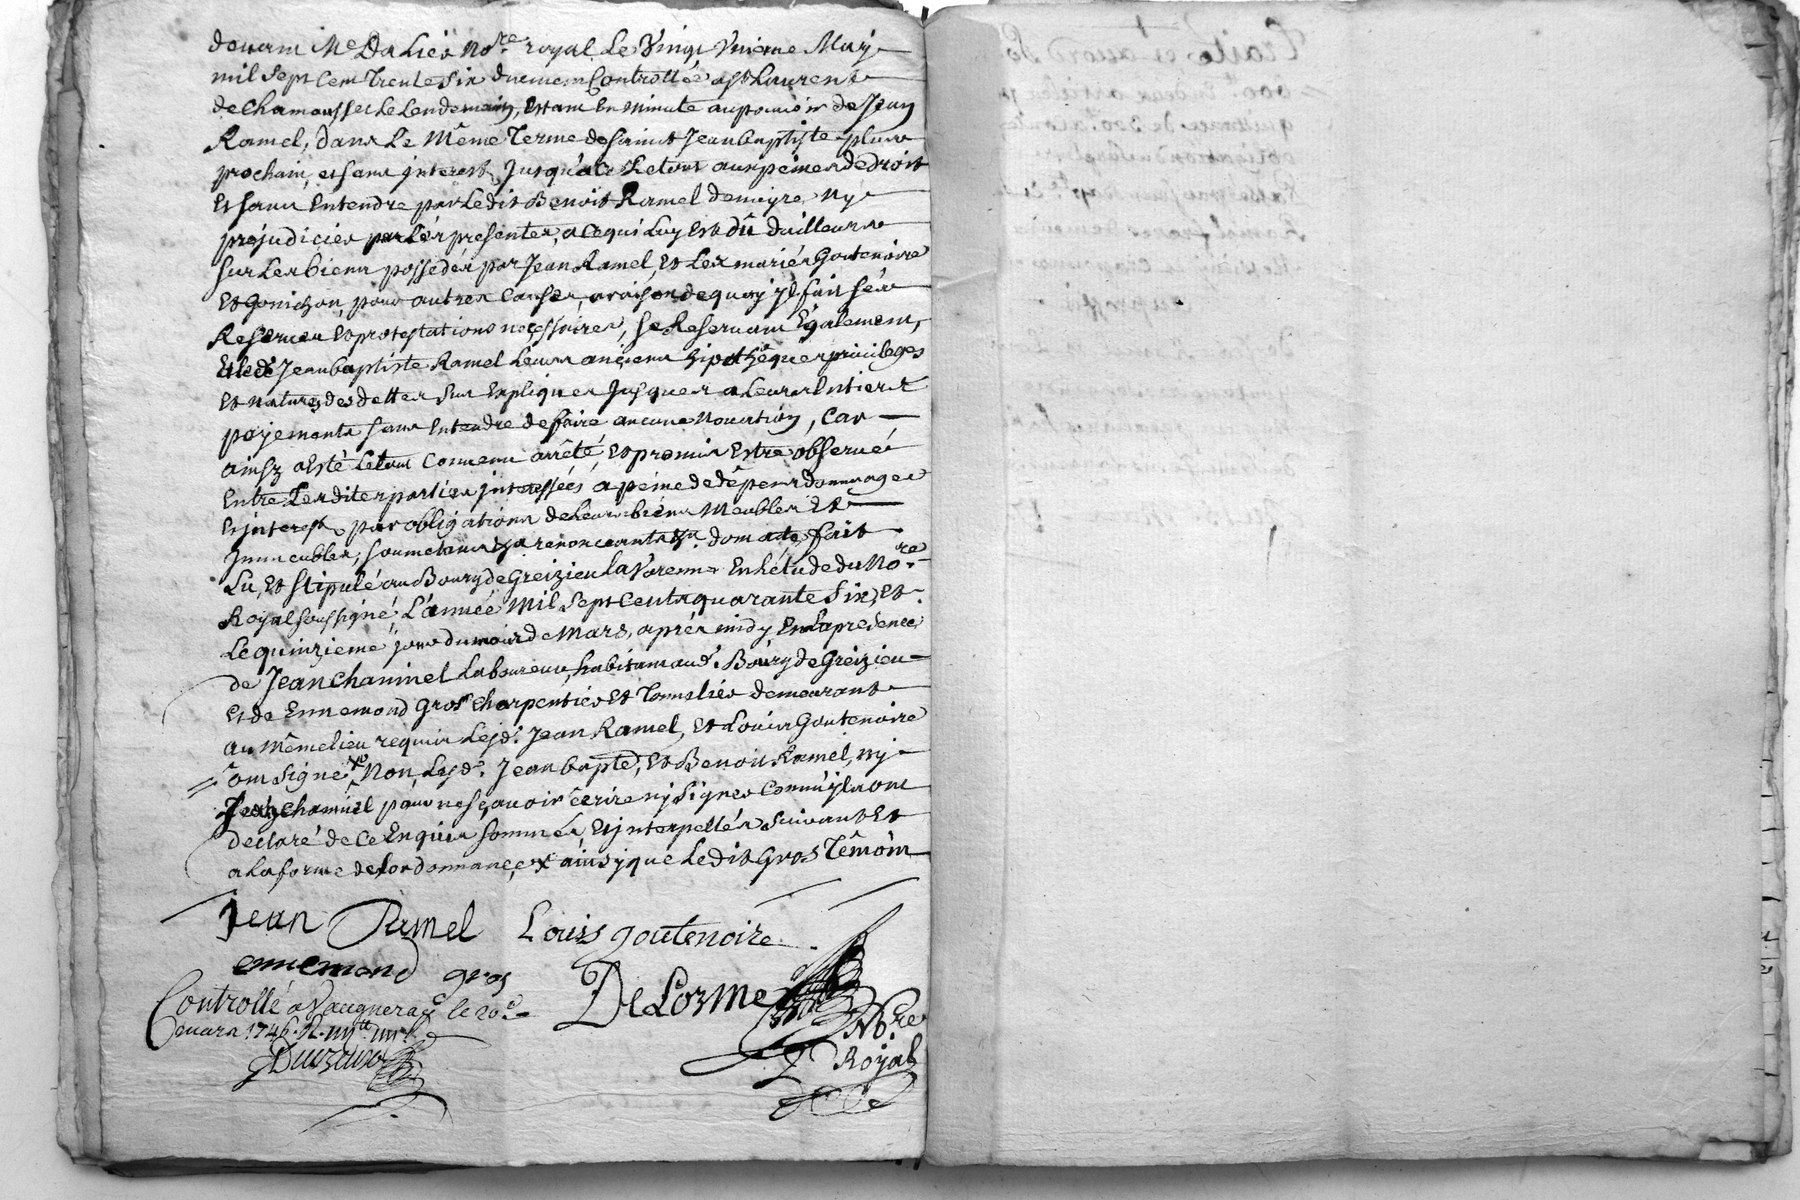 devant Me Daliés No.re royal Le Vingt Unieme May
mil sept Cent Trente Six duement Controllée a St Laurent
de Chamousset Le Lendemain, Estant En minute au pouvoir de Jean
Ramel, dans Le Même Terme de Saint Jean baptiste plus
prochain, et sans interest Jusqu'alors Le tout aux peines de Droit
Et sans Entendre par Ledit Benoit Ramel deroger ny
prejudicier par Les presentes, a ce qui Luy Est dû d'ailleurs
sur Les biens possedés par Jean Ramel, Et Les mariés Goutenoire
Et Gonichon, pour autres Causes, a raison de quoy jl fait ses
Reserves Et protestations necessaires, se Reservant Egalement,
Et led. Jean baptiste Ramel Leurs anciens hipothèques privileges
Et natures des dettes sus Expliquées Jusques a Leurs Entiers
payements sans Entendre de faire aucune Novation, Car
ainsy a Esté Le tout Convenu arrêté, Et promis Estre observé
Entre Les dites parties jnteressées a peine de dêpens dommages
Et jnterest, par obligations de Leurs biens Meubles Et
jmmeubles, soumetant &a renonceant &a dont acte, fait
Lu, Et stipulé au Bourg de Greizieu la Varenne En l'étude du No.re
Royal soussigné, L'année Mil Sept Cents quarante Six, Et
Le quinzieme jour du mois de Mars, aprés midy En La presence
de Jean Chaninel Laboureur, habitant aud. Bourg de Greizieu
Et de Ennemond Gros Charpentier Et Tonnelier demeurant
au Même lieu requis Lesd. Jean Ramel, Et Louis Goutenoire
ont Signé × Non, Lesd. Jean bapte, Et Benoit Ramel, ny
Jean Chaninel pour ne sçavoir écrire ny Signer Comm'jls ont
declaré de Ce Enquis sommés Et jnterpellés Suivant Et
a la forme de l'ordonnance × ainsy que Ledit Gros Témoin
Jean Ramel Louis goutenoire
ennemond gros
DeLorme
No.re
Royal
Controllé a Vaugneray le 20e
mars 1746. R.